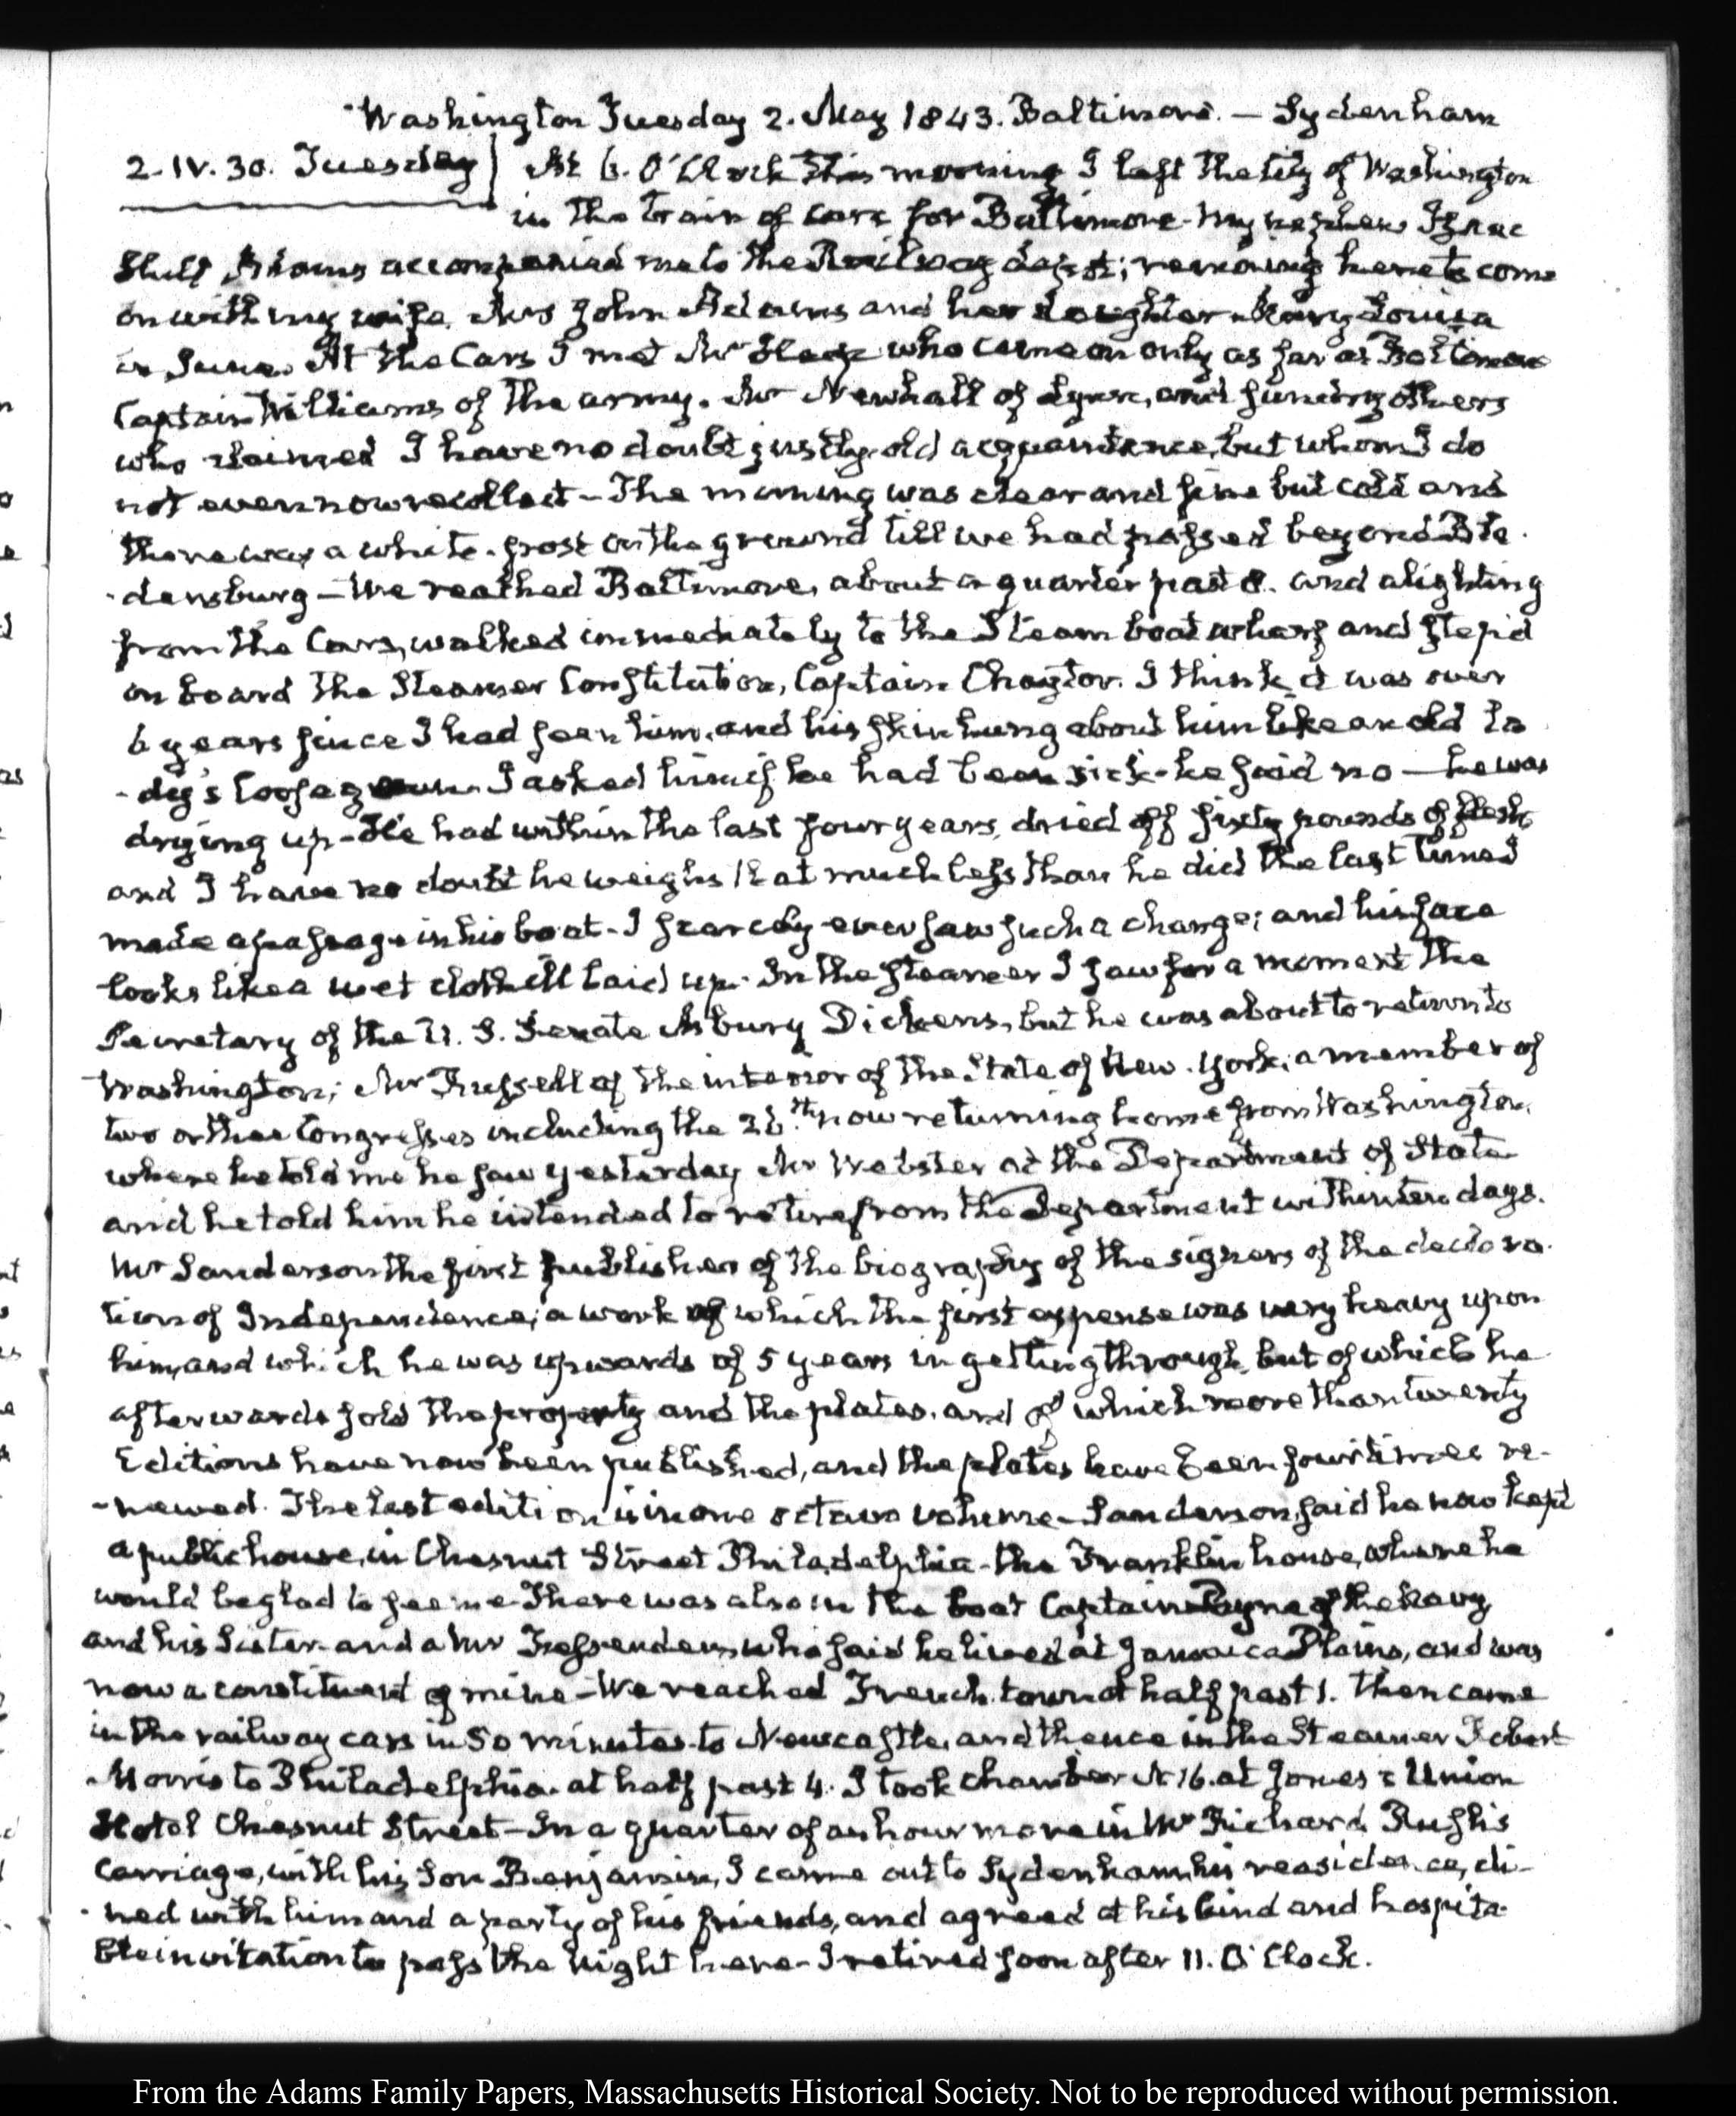 Washington Tuesday 2. May 1843. Baltimore. — Sydenham
2. IV. 30. Tuesday} At 6. O'Clock this morning I left the City of Washington
in the train of cars for Baltimore. My nephew Isaac
Hull Adams accompanied me to the Railway depot; remaining here to come
on with my wife, Mrs John Adams and her daughter Mary Louisa
in June. At the Cars I met Mr who came on only as far as Baltimore
Captain Williams of the army. Mr Newhall of Lynn, and sundry others
who claimed I have no doubt justly old acquaintance, but whom I do
not even now recollect – The morning was clear and fine but cold and
there was a white frost on the ground till we had passed beyond Bla-
-densburg – We reached Baltimore, about a quarter past 8. and alighting
from the Cars, walked immediately to the Steam boat wharf and step'd
on board the Steamer Constitution, Captain Chaytor. I think it was over
6 years since I had seen him, and his skin hung about him like an old la
-dy's loose gown. I asked him if he had been sick – he said no – he was
drying up – He had within the last four years, dried off sixty pounds of flesh,
and I have no doubt he weighs that much less than he did the last time I
made a passage in his boat – I scarcely ever saw such a change; and his face
looks like a wet cloth ill laid up. In the steamer I saw for a moment the
Secretary of the U. S. Senate Asbury Dickens, but he was about to return to
Washington; Mr Russell of the interior of the State of New-York; a member of
two or three Congresses including the 26.th now returning home from Washington,
where he told me he saw yesterday Mr Webster at the Department of State
and he told him he intended to retire from the Department within ten days.
Mr Sanderson the first publisher of the biography of the signers of the declara-
tion of Independence; a work of which the first expense was very heavy upon
him, and which he was upwards of 5 years in getting through, but of which he
afterwards sold the property and the plates. and of which more than twenty
Editions have now been published, and the plates have been four times re-
-newed. The last edition is in one octavo volume – Sanderson said he now kept
a public house, in Chesnut Street Philadelphia – the Franklin house, where he
would be glad to see me. There was also in the boat Captain Payne of the navy
and his Sister and a Mr Fessenden, who said he lived at Jamaica Plains, and was
now a constituent of mine – We reached French town at half past 1. then came
in the railway cars in 50 minutes to Newcastle, and thence in the Steamer Robert
Morris to Philadelphia. at half past 4. I took chamber N. 16. at Jones's Union
Hotel Chesnut Street – In a quarter of an hour more in Mr Richard Rush's
Carriage, with his Son Benjamin, I came out to Sydenham, his reasidence, di-
-ned with him and a party of his friends, and agreed at his kind and hospita-
ble invitation to pass the night here – I retired soon after 11. O'Clock.
From the Adams Family Papers, Massachusetts Historical Society. Not to be reproduced without permission.